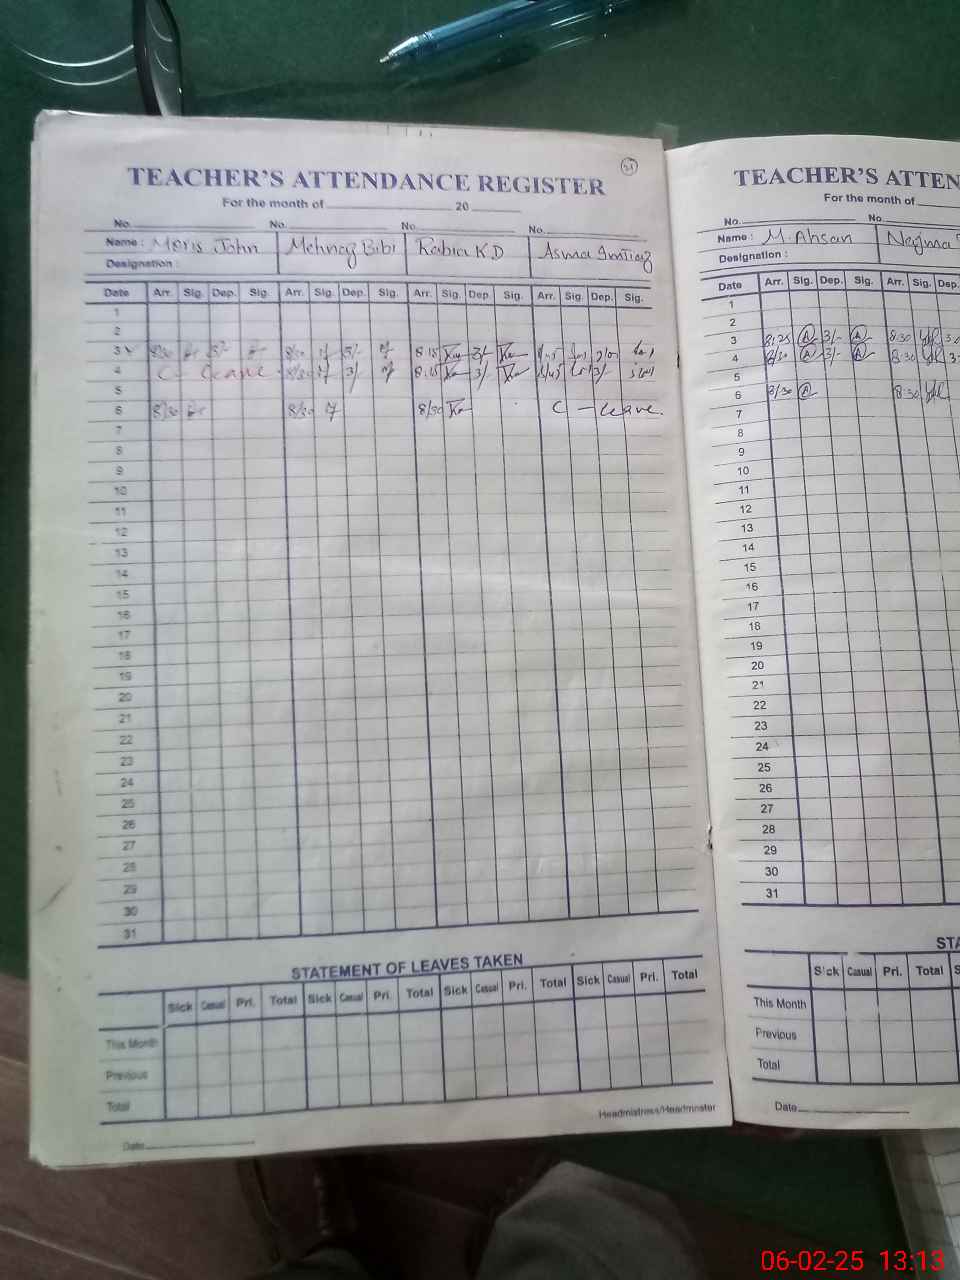 21
TEACHER'S ATTENDANCE REGISTER
For the month of 20
No. No. No. No.
Name : Meris John Mehnaz Bibi Rabia K D Asma Imtiaz
Designation :
Date Arr. Sig. Dep. Sig. Arr. Sig. Dep. Sig. Arr. Sig. Dep. Sig. Arr. Sig. Dep. Sig.
1
2
3 8/30 3/- 8/30 3/- 8:15 3/-
4 C- Leave 8/30 3/- 8:15 3/- 3/-
5
6 8/30 8/30 8/30 C - Leave.
7
8
9
10
11
12
13
14
15
16
17
18
19
20
21
22
23
24
25
26
27
28
29
30
31
STATEMENT OF LEAVES TAKEN
Sick Casual Pri. Total Sick Casual Pri. Total Sick Casual Pri. Total Sick Casual Pri. Total
This Month
Previous
Total
Headmistress/Headmaster
Date
TEACHER'S ATTEN
For the month of
No. No.
Name : M. Ahsan Najma
Designation :
Date Arr. Sig. Dep. Sig. Arr. Sig. Dep.
1
2
3 8:25 A 3/- A 8:30
4 8/30 A 3/- A 8:30
5
6 8/30 A 8:30
7
8
9
10
11
12
13
14
15
16
17
18
19
20
21
22
23
24
25
26
27
28
29
30
31
STA
Sick Casual Pri. Total S
This Month
Previous
Total
Date
06-02-25 13:13